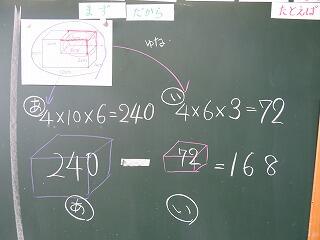 まず
だから
たとえば
ゆな
あ 4×10×6=240
い 4×6×3=72
240 − 72 =168
あ い